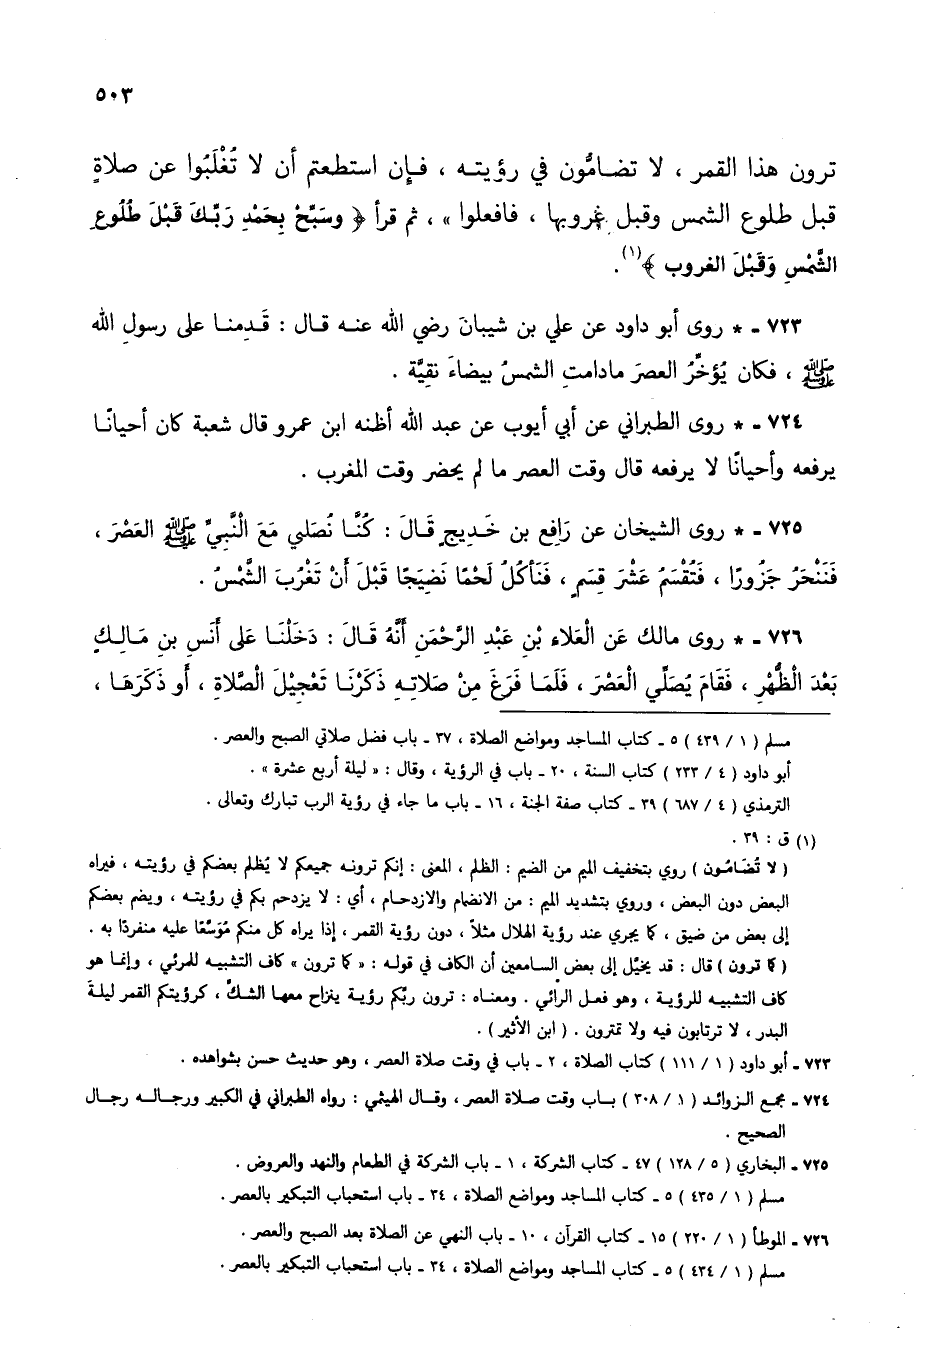 ٥٠٣
ترون هذا القمر ، لا تضامُّون في رؤيتـه ، فـإن استطعتم أن لا تُغْلَبُوا عن صلاةٍ
قبل طلوع الشمس وقبل غروبها ، فافعلوا » ، ثم قرأ ﴿ وسَبِّحْ بِحَمْدِ رَبِّـكَ قَبْلَ طُلُوعِ
الشَّمْسِ وَقَبْلَ الغروب ﴾(١) .
٧٢٣ ـ * روى أبو داود عن علي بن شيبانَ رضي الله عنـه قـال : قَـدِمنـا على رسولِ الله
ﷺ ، فكان يُؤخِّرُ العصرَ مادامتِ الشمسُ بيضاءَ نقيَّة .
٧٢٤ ـ * روى الطبراني عن أبي أيوب عن عبد الله أظنه ابن عمرو قال شعبة كان أحيانًـا
يرفعه وأحيانًا لا يرفعه قال وقت العصر ما لم يحضر وقت المغرب .
٧٢٥ ـ * روى الشيخان عن رَافِع بن خَديجٍ قَـالَ : كُنَّـا نُصَلي مَعَ الْنَّبيِّ ﷺ العَصْرَ ،
فَنَنْحَرُ جَزُورًا ، فَتُقْسَمُ عَشْرَ قِسَمٍ ، فَنَأكُلُ لَحْمًا نَضِيجًا قَبْلَ أَنْ تَغْرُبَ الشَّمْسُ .
٧٢٦ ـ * روى مالك عَن الْعَلاء بْنِ عَبْدِ الرَّحْمَنِ أَنَّهُ قَالَ : دَخَلْنَـا عَلى أَنَسِ بنِ مَـالِـكٍ
بَعْدَ الْظُّهْرِ ، فَقَامَ يُصَلِّي الْعَصْرَ ، فَلَمَّا فَرَغَ مِنْ صَلاتِـهِ ذَكَرْنَـا تَعْجِيْلَ الْصَّلاةِ ، أَو ذَكَرَهَـا ،
مسلم ( ١ / ٤٣٩ ) ٥ ـ كتاب المساجد ومواضع الصلاة ، ٣٧ ـ باب فضل صلاتي الصبح والعصر .
أبو داود ( ٤ / ٢٣٣ ) كتاب السنة ، ٢٠ ـ باب في الرؤية ، وقال : « ليلة أربع عشرة » .
الترمذي ( ٤ / ٦٨٧ ) ٣٩ ـ كتاب صفة الجنة ، ١٦ ـ باب ما جاء في رؤية الرب تبارك وتعالى .
(١) ق : ٣٩ .
( لا تُضَامُون ) روي بتخفيف الميم من الضيم : الظلم ، المعنى : إنكم ترونـه جميعكم لا يُظلم بعضكم في رؤيتـه ، فيراه
البعض دون البعض ، وروي بتشديد الميم : من الانضام والازدحام ، أي : لا يزدحم بكم في رؤيتـه ، ويضم بعضكم
إلى بعض من ضيق ، كما يجري عند رؤية الهلال مثلاً ، دون رؤية القمر ، إذا يراه كل منكم مُوَسَّعًا عليه منفردًا به .
( كما ترون ) قال : قد يخيَّل إلى بعض السامعين أن الكاف في قولـه : « كما ترون » كاف التشبيـه للمرئي ، وإنمـا هو
كاف التشبيـه للرؤيـة ، وهو فعـل الرَّائي . ومعنـاه : ترون ربَّكم رؤيـة ينزاح معهـا الشكُّ ، كرؤيتكم القمر ليلـةَ
البدر ، لا ترتابون فيه ولا تمترون . ( ابن الأثير ) .
٧٢٣ ـ أبو داود ( ١ / ١١١ ) كتاب الصلاة ، ٢ ـ باب في وقت صلاة العصر ، وهو حديث حسن بشواهده .
٧٢٤ ـ مجمع الـزوائـد ( ١ / ٣٠٨ ) بـاب وقت صـلاة العصر ، وقـال الهيثمي : رواه الطبراني في الكبير ورجـالـه رجـال
الصحيح .
٧٢٥ ـ البخاري ( ٥ / ١٢٨ ) ٤٧ ـ كتاب الشركة ، ١ ـ باب الشركة في الطعام والنهد والعروض .
مسلم ( ١ / ٤٣٥ ) ٥ ـ كتاب المساجد ومواضع الصلاة ، ٣٤ ـ باب استحباب التبكير بالعصر .
٧٢٦ ـ الموطأ ( ١ / ٢٢٠ ) ١٥ ـ كتاب القرآن ، ١٠ ـ باب النهي عن الصلاة بعد الصبح والعصر .
مسلم ( ١ / ٤٣٤ ) ٥ ـ كتاب المساجد ومواضع الصلاة ، ٣٤ ـ باب استحباب التبكير بالعصر .